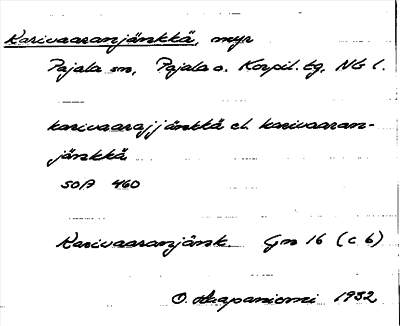 Karivaaranjänkkä, myr
Pajala sn, Pajala o. Korpil. tg, Nb l.
karivaarajjänkkä el. karivaaran-
jänkkä
SOA 460
Karivaaranjänk. Gn 16 (c 6)
O. Haapaniemi 1932